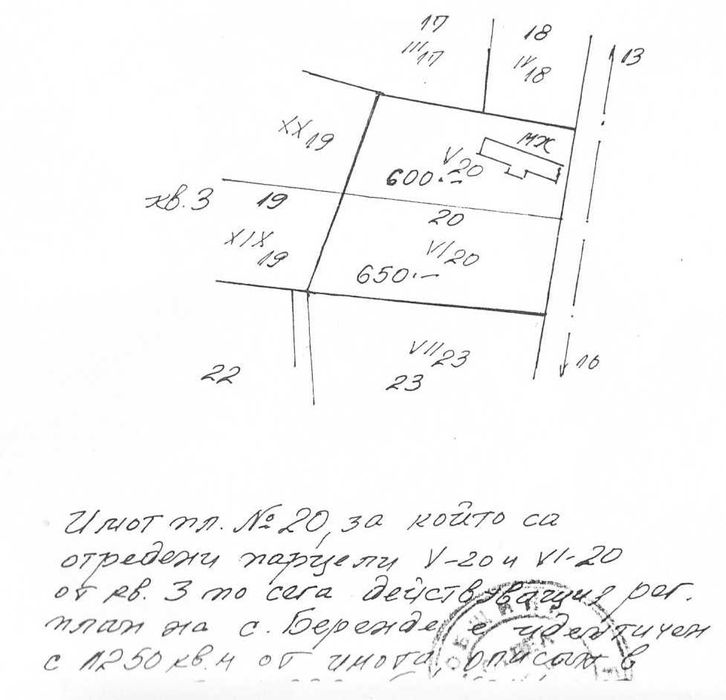 17
III 17
18
IV 18
13
XX 19
V 20
МЖ
600.-
кв. 3
19
20
XIX 19
VI 20
650.-
VII 23
23
22
16
Имот пл. № 20, за който са
отредени парцели V-20 и VI-20
от кв. 3 по сега действуващия рег.
план на с. Беренде е идентичен
с 1250 кв.м от имота, описан в